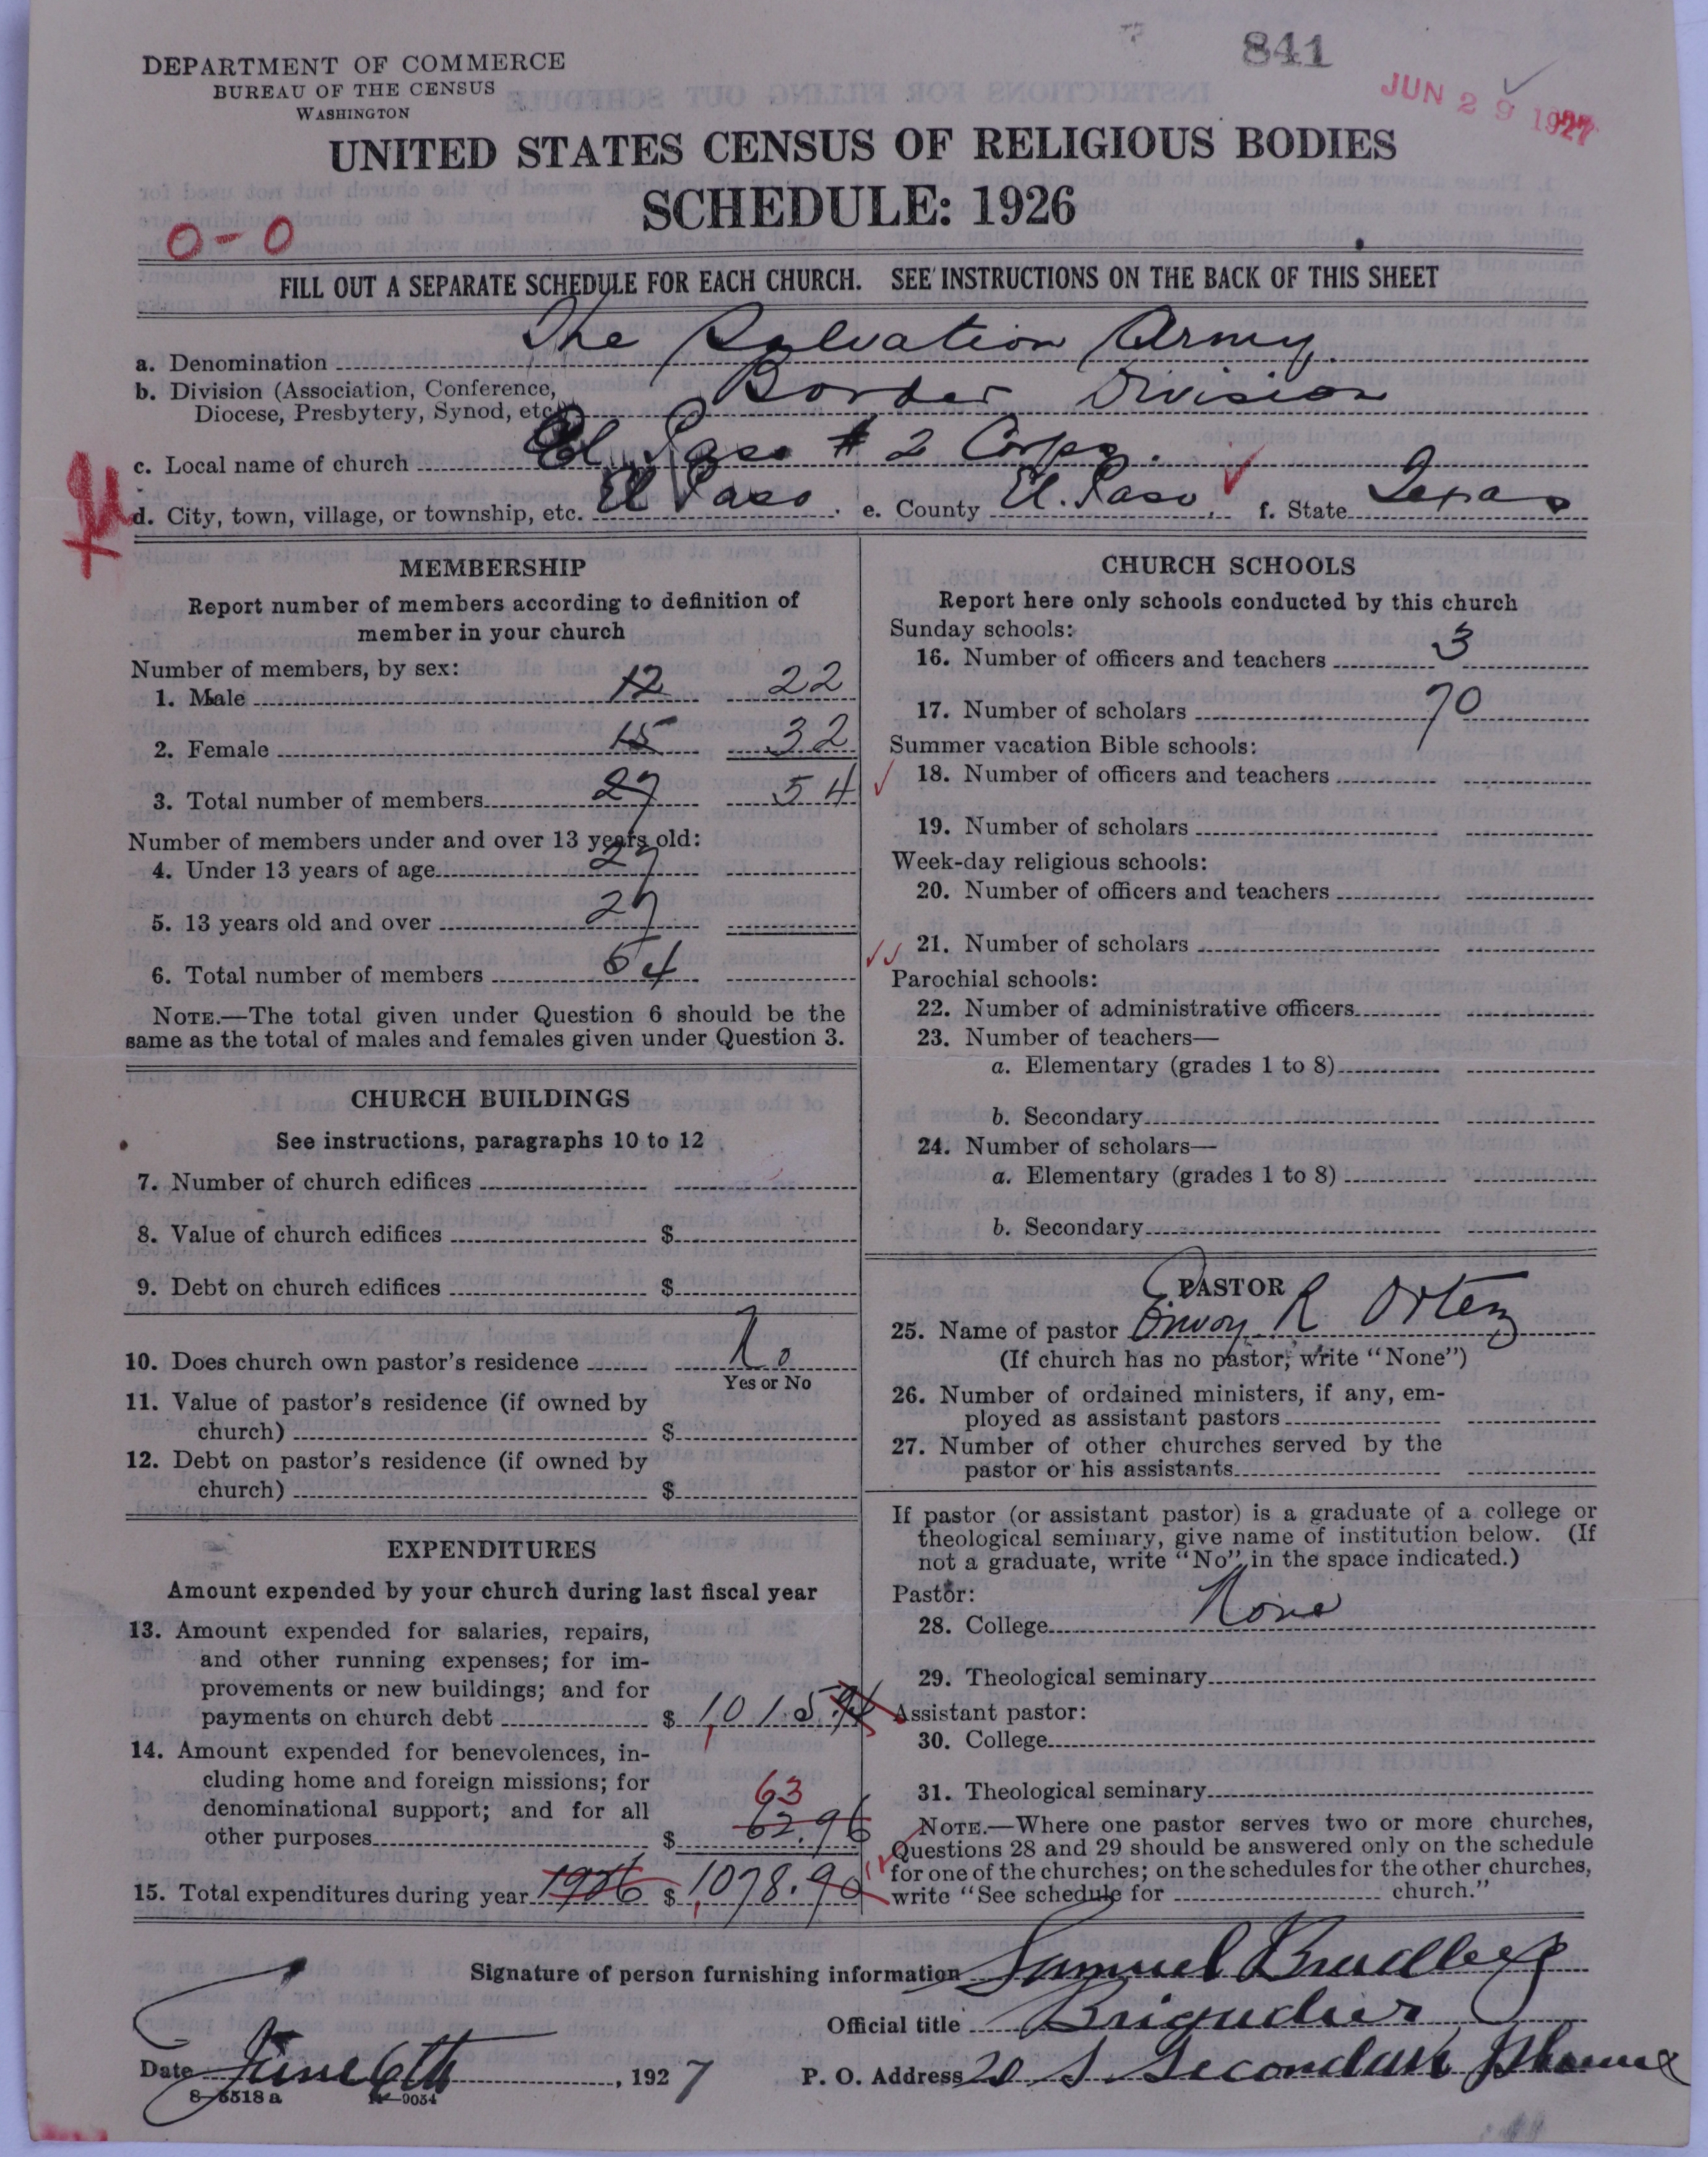 841
JUN 29 1927
DEPARTMENT OF COMMERCE
BUREAU OF THE CENSUS
WASHINGTON
UNITED STATES CENSUS OF RELIGIOUS BODIES
SCHEDULE: 1926
0-0
FILL OUT A SEPARATE SCHEDULE FOR EACH CHURCH. SEE INSTRUCTIONS ON THE BACK OF THIS SHEET
a. Denomination The Salvation Army.
b. Division (Association, Conference, Border Division
Diocese, Presbytery, Synod, etc.)
c. Local name of church El Paso # 2 Corps.
d. City, town, village, or township, etc. El Paso. e. County El. Paso. f. State Texas
MEMBERSHIP
Report number of members according to definition of
member in your church
Number of members, by sex:
1. Male 12 22
2. Female 15 32
3. Total number of members 27 54
Number of members under and over 13 years old:
4. Under 13 years of age 27
5. 13 years old and over 27
6. Total number of members 54
NOTE.—The total given under Question 6 should be the
same as the total of males and females given under Question 3.
CHURCH BUILDINGS
See instructions, paragraphs 10 to 12
7. Number of church edifices
8. Value of church edifices $
9. Debt on church edifices $
10. Does church own pastor's residence No
Yes or No
11. Value of pastor's residence (if owned by
church) $
12. Debt on pastor's residence (if owned by
church) $
EXPENDITURES
Amount expended by your church during last fiscal year
13. Amount expended for salaries, repairs,
and other running expenses; for im-
provements or new buildings; and for
payments on church debt $ 1,015.94
14. Amount expended for benevolences, in-
cluding home and foreign missions; for
denominational support; and for all 63
other purposes $ 62.96
15. Total expenditures during year 1926 $ 1,078.90
CHURCH SCHOOLS
Report here only schools conducted by this church
Sunday schools:
16. Number of officers and teachers 3
17. Number of scholars 70
Summer vacation Bible schools:
18. Number of officers and teachers
19. Number of scholars
Week-day religious schools:
20. Number of officers and teachers
21. Number of scholars
Parochial schools:
22. Number of administrative officers
23. Number of teachers—
a. Elementary (grades 1 to 8)
b. Secondary
24. Number of scholars—
a. Elementary (grades 1 to 8)
b. Secondary
PASTOR
25. Name of pastor Envoy R Ortez
(If church has no pastor, write "None")
26. Number of ordained ministers, if any, em-
ployed as assistant pastors
27. Number of other churches served by the
pastor or his assistants
If pastor (or assistant pastor) is a graduate of a college or
theological seminary, give name of institution below. (If
not a graduate, write "No" in the space indicated.)
Pastor:
28. College None
29. Theological seminary
Assistant pastor:
30. College
31. Theological seminary
NOTE.—Where one pastor serves two or more churches,
Questions 28 and 29 should be answered only on the schedule
for one of the churches; on the schedules for the other churches,
write "See schedule for church."
Signature of person furnishing information Samuel Bradley
Official title Brigadier
Date June 6th, 1927 P. O. Address 20 S. Second Ave Phoenix
8—5518 a 11—9054